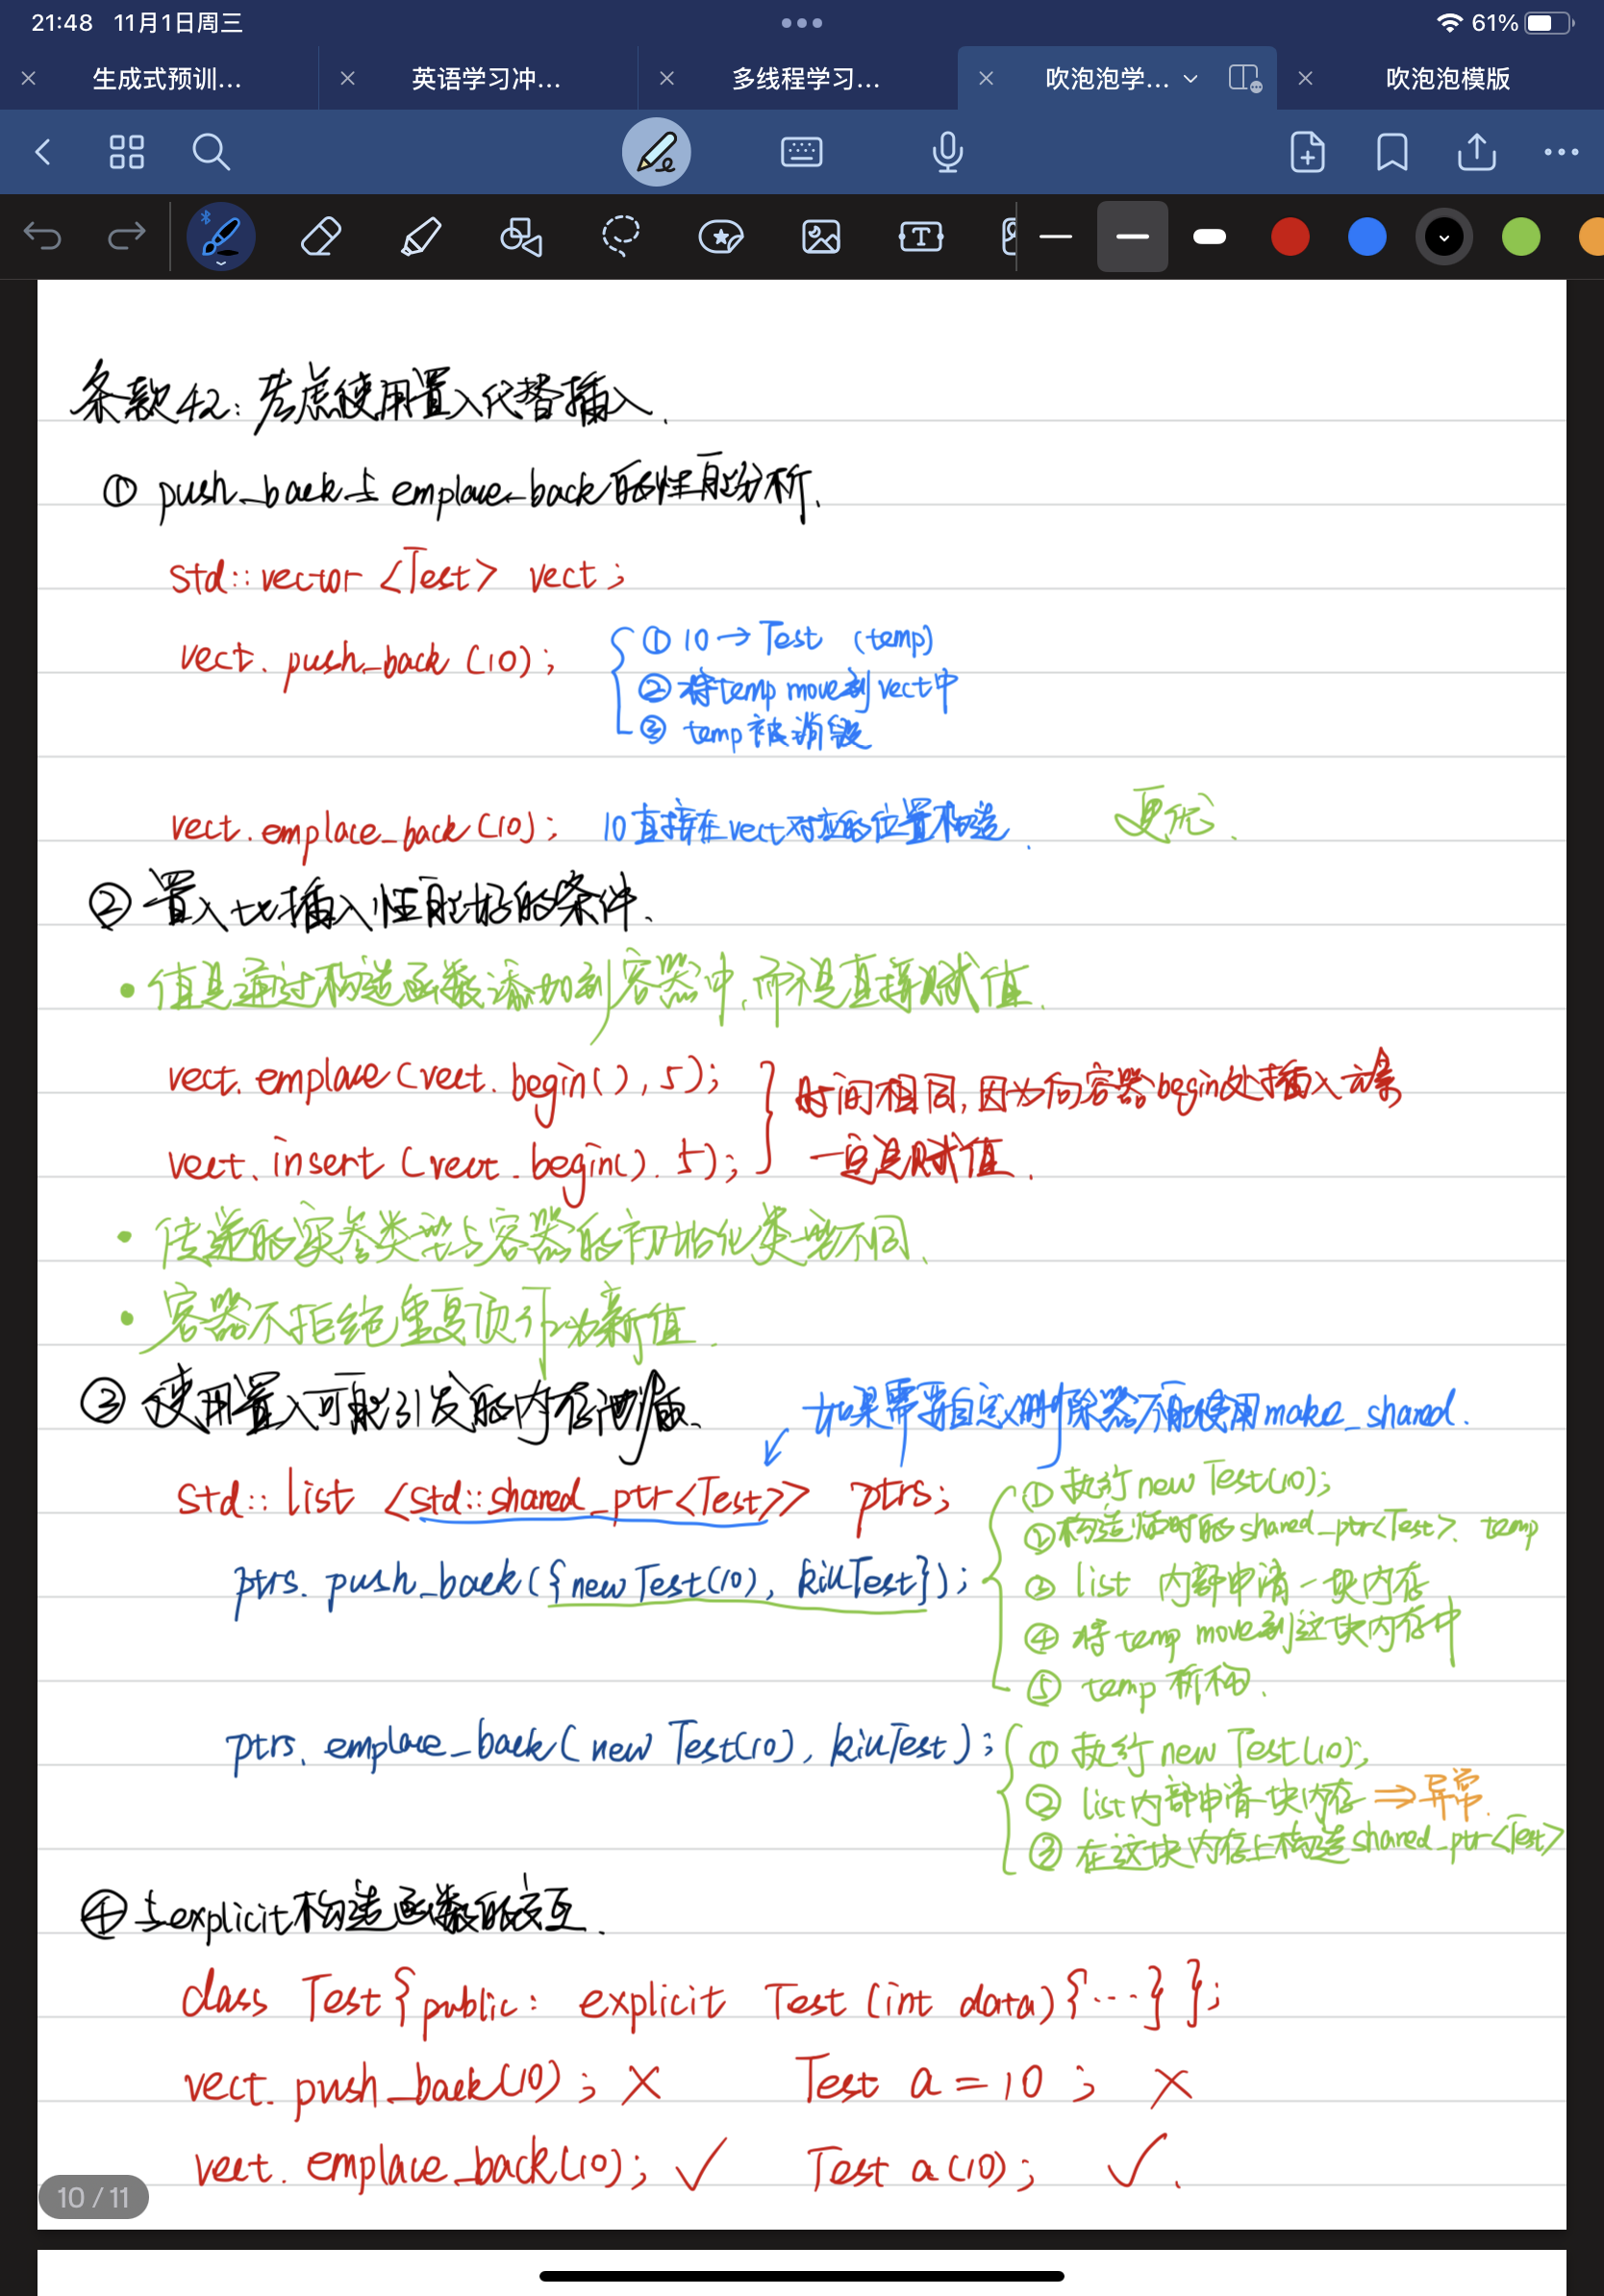 21:48 11月1日周三
61%
生成式预训... 英语学习冲... 多线程学习... 吹泡泡学... 吹泡泡模版
条款42: 考虑使用置入代替插入.
① push_back与emplace_back的性能分析.
std::vector <Test> vect;
vect. push_back (10);
① 10 → Test (temp)
② 将temp move到vect中
③ temp被销毁
vect. emplace_back (10); 10直接在vect对应的位置构造. 更优.
② 置入比插入性能好的条件.
• 值是通过构造函数添加到容器中,而不是直接赋值.
vect. emplace (vect. begin(), 5);
vect. insert (vect. begin(). 5);
时间相同,因为向容器begin处插入元素
一定是赋值.
• 传递的实参类型与容器的初始化类型不同.
• 容器不拒绝重复项作为新值.
③ 使用置入可能引发的内存泄漏. 如果需要自定义删除器不能使用make_shared.
std:: list <std::shared_ptr<Test>> ptrs;
ptrs. push_back ({new Test(10), killTest});
① 执行new Test(10);
② 构造临时的shared_ptr<Test>. temp
③ list 内部申请一块内存
④ 将temp move到这块内存中
⑤ temp 析构.
ptrs. emplace_back( new Test(10), killTest );
① 执行new Test(10);
② list内部申请一块内存 ⇒异常.
③ 在这块内存上构造shared_ptr<Test>
④ 与explicit构造函数的交互.
class Test{public: explicit Test (int data){...} };
vect. push_back(10); × Test a = 10 ; ×
vect. emplace_back(10); ✓ Test a (10); ✓.
10 / 11